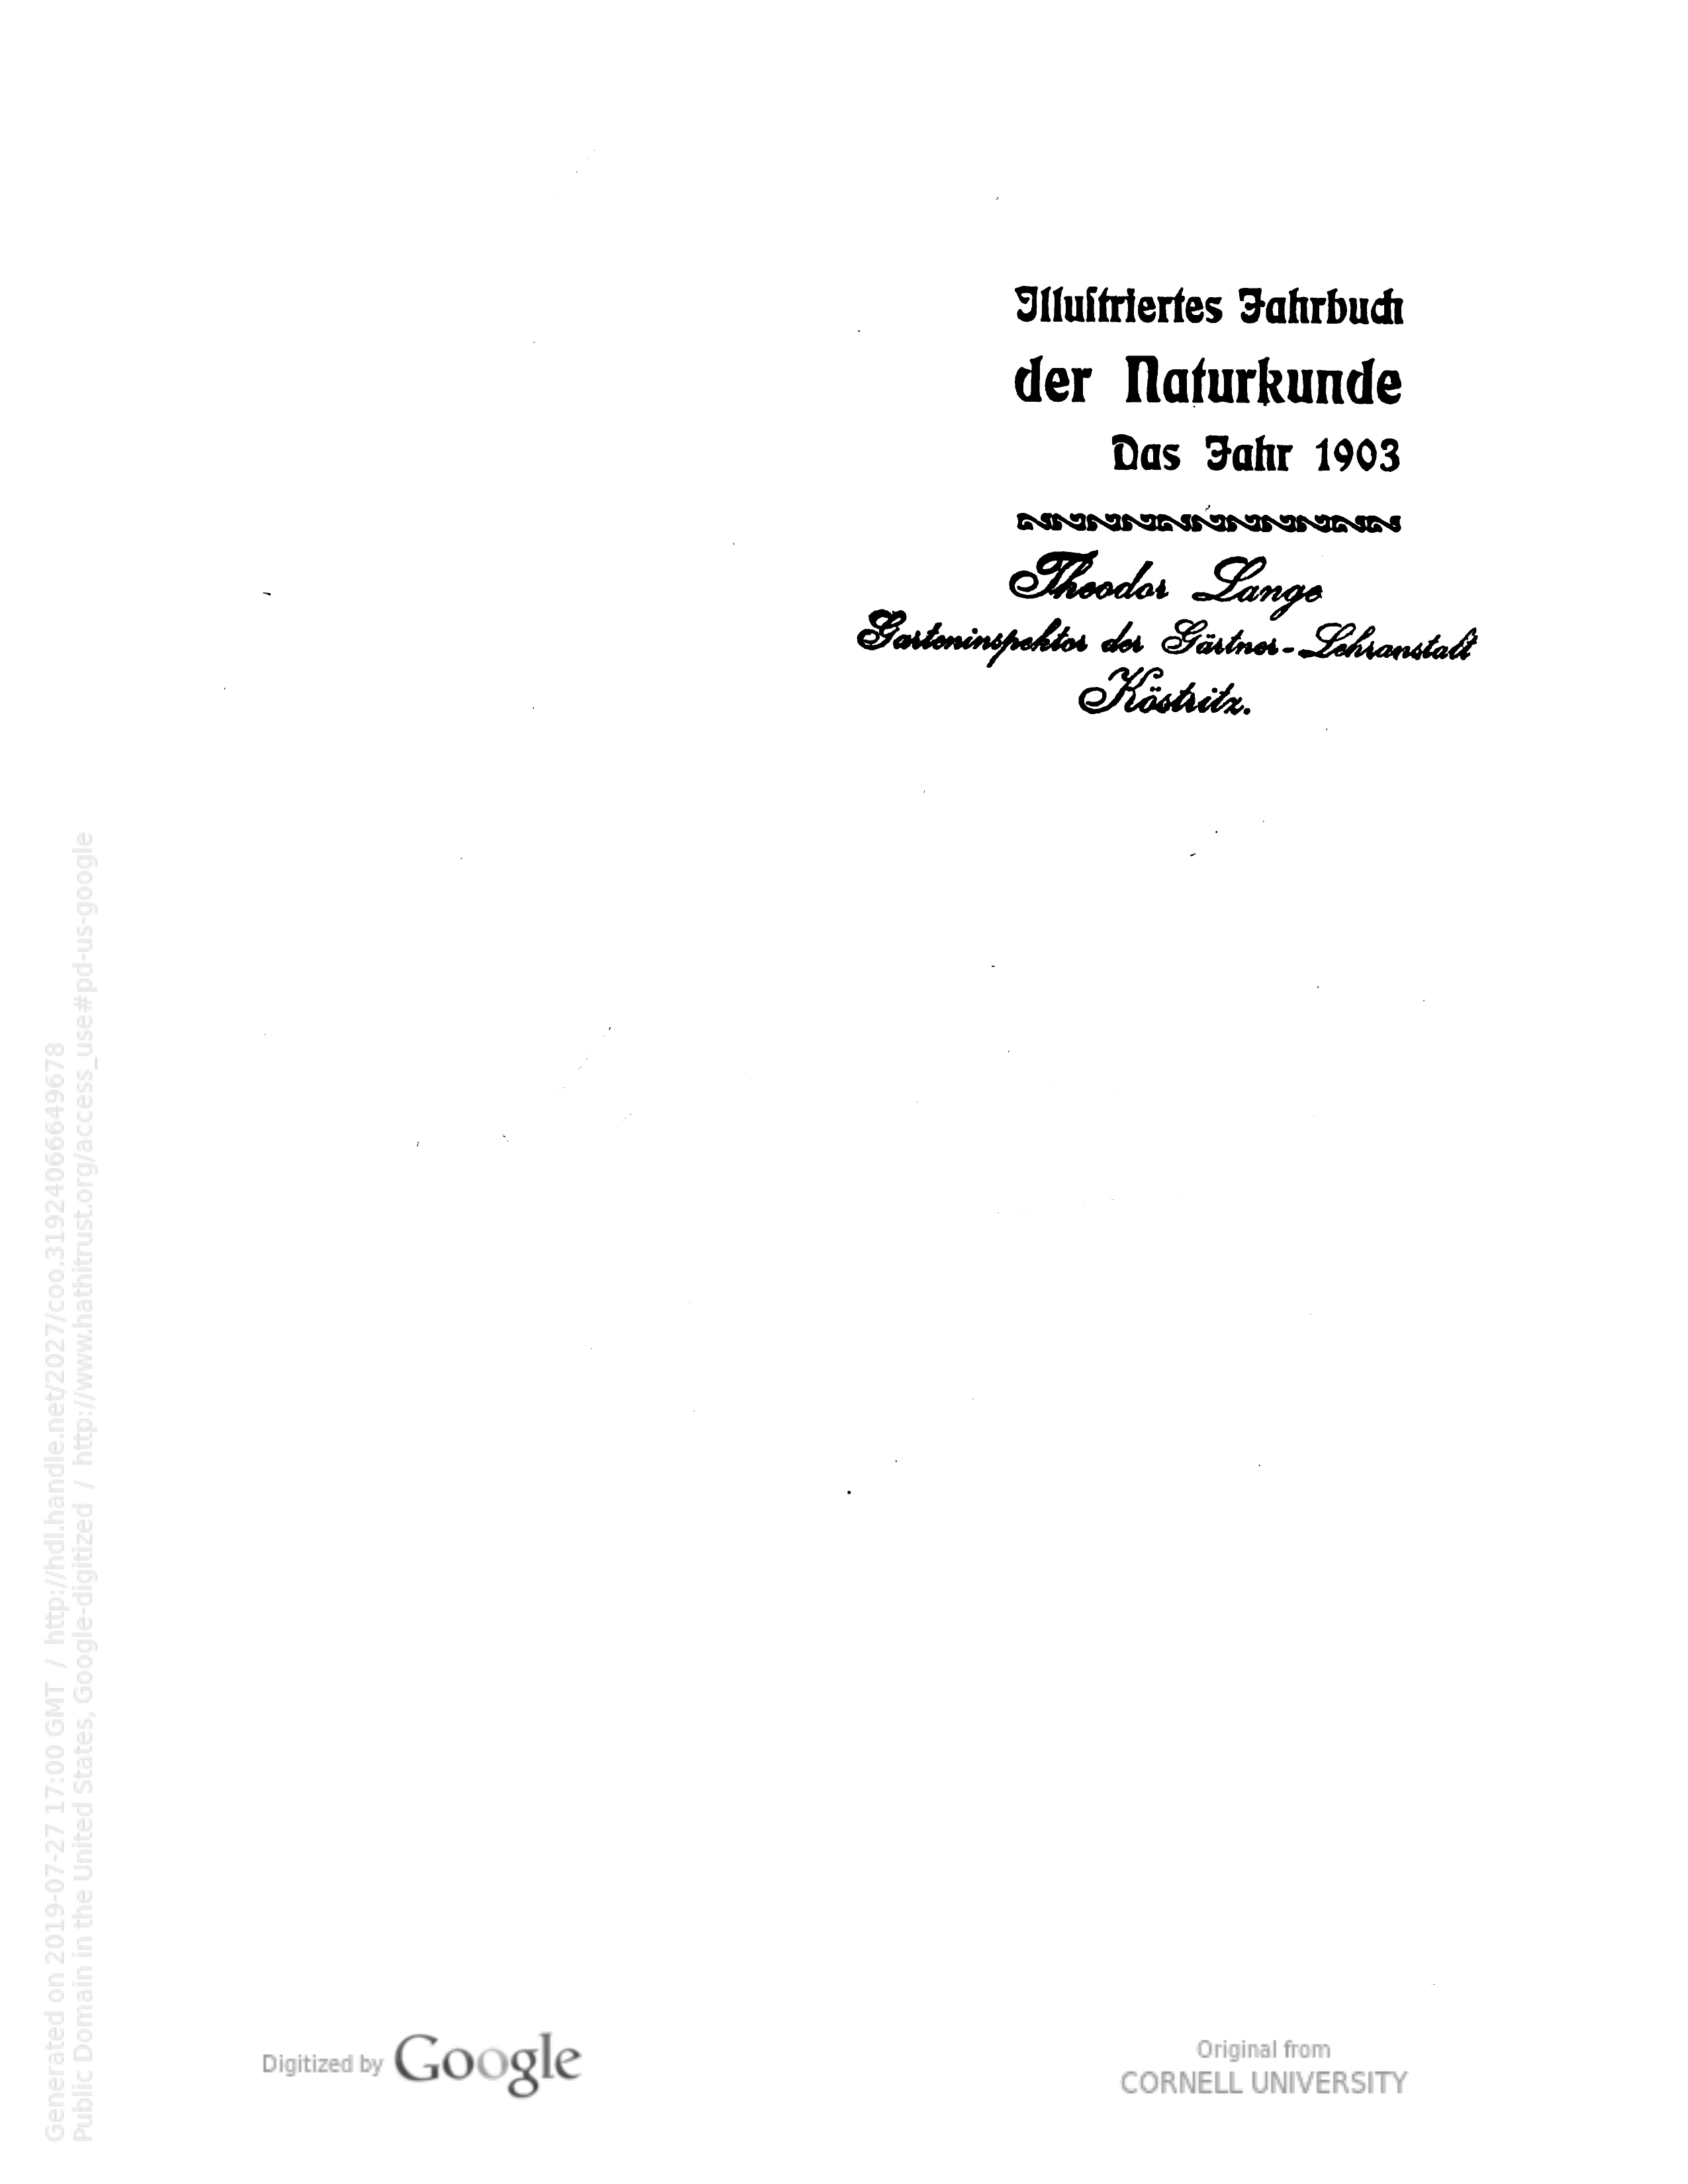 Illuſtriertes Jahrbuch
der Naturkunde
Das Jahr 1903
Theodor Lange
Garteninspektor der Gärtner-Lehranstalt
Köstritz.
Generated on 2019-07-27 17:00 GMT / http://hdl.handle.net/2027/coo.31924066649678
Public Domain in the United States, Google-digitized / http://www.hathitrust.org/access_use#pd-us-google
Digitized by Google
Original from
CORNELL UNIVERSITY